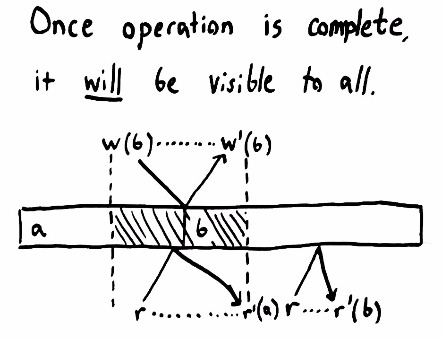 Once operation is complete,
it will be visible to all.
w(b)........w'(b)
a b
r............r'(a) r.....r'(b)